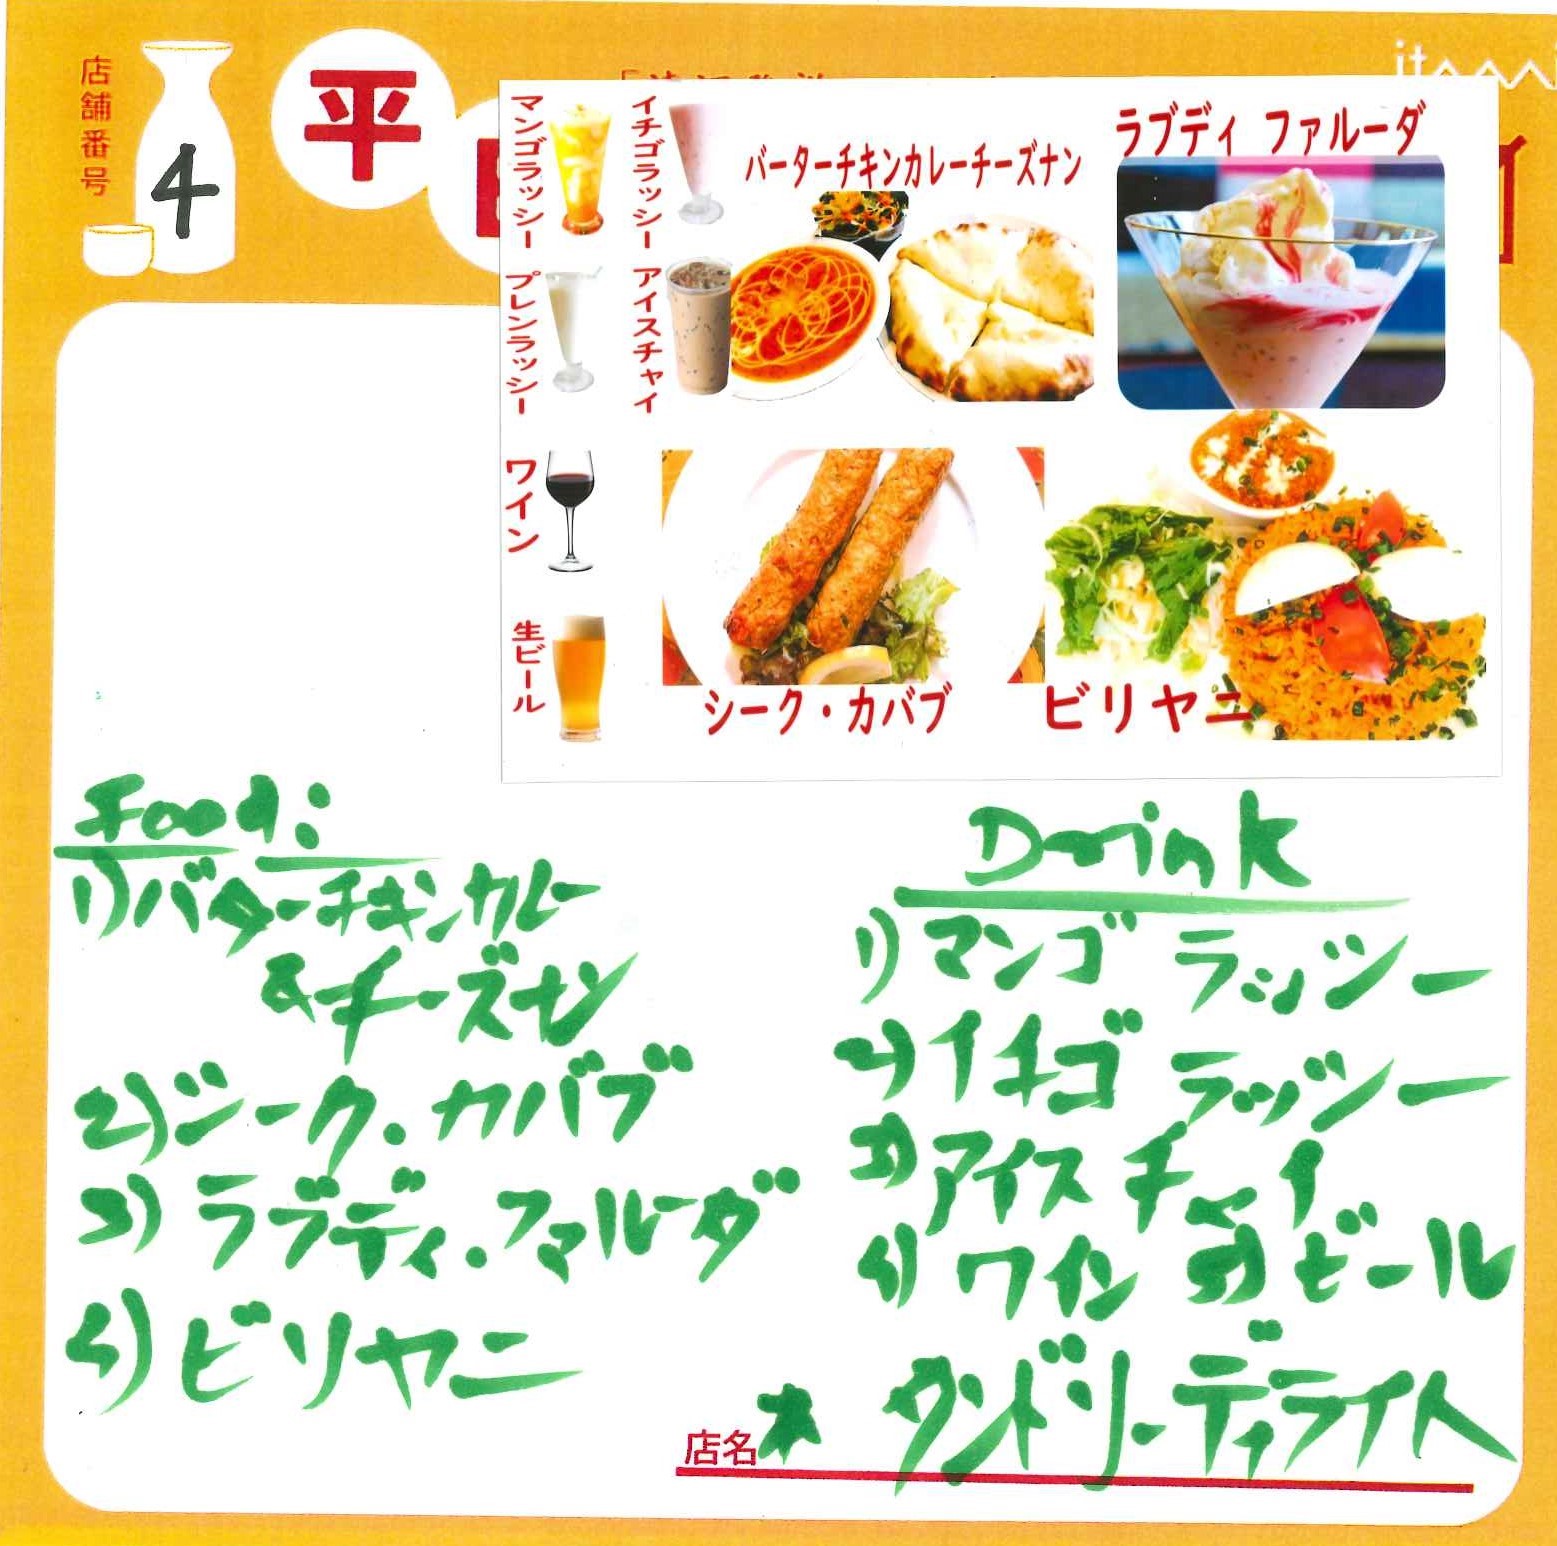 店舗番号
4
平
マンゴラッシー
イチゴラッシー
バーターチキンカレーチーズナン
ラブディ ファルーダ
プレンラッシー
アイスチャイ
ワイン
生ビール
シーク・カバブ
ビリヤニ
Food:
1)バターチキンカレー
&チーズナン
2)シーク・カバブ
3)ラブディ・ファルーダ
4)ビリヤニ
Drink
1)マンゴ ラッシー
2)イチゴ ラッシー
3)アイス チャイ
4)ワイン 5)ビール
店名 タンドリーディライト